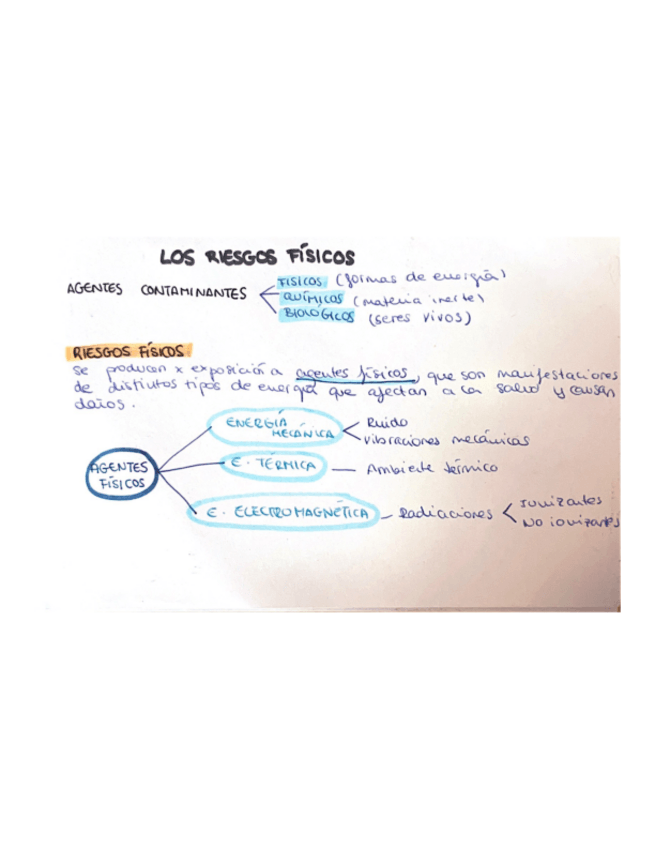 LOS RIESGOS FÍSICOS
AGENTES CONTAMINANTES
FISICOS (formas de energía)
QUÍMICOS (materia inerte)
BIOLÓGICOS (seres vivos)
RIESGOS FÍSICOS:
Se producen x exposición a agentes físicos, que son manifestaciones
de distintos tipos de energía que afectan a la salud y causan
daños.
ENERGÍA MECÁNICA
Ruido
Vibraciones mecánicas
AGENTES FÍSICOS
E. TÉRMICA
Ambiente térmico
E. ELECTROMAGNÉTICA
Radiaciones
Ionizantes
No ionizantes